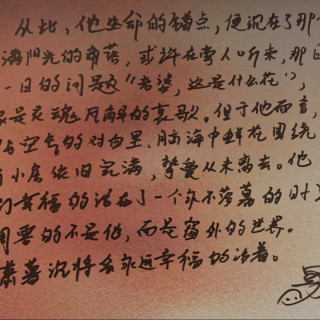 从此,他生命的锚点,便沉在了那
满阳光的角落,或许在旁人听来,那日
一日的问是"老婆,这是什么花",
是灵魂瓦解的哀歌。但于他而言,
与空气的对白里,脑海中鲜花围绕
小屋依旧完满,挚爱从未离去。他
们幸福的活在了一个永不落幕的时
周要的不是他,而是窗外的世界。
萧暮沉将会永远幸福的活着。